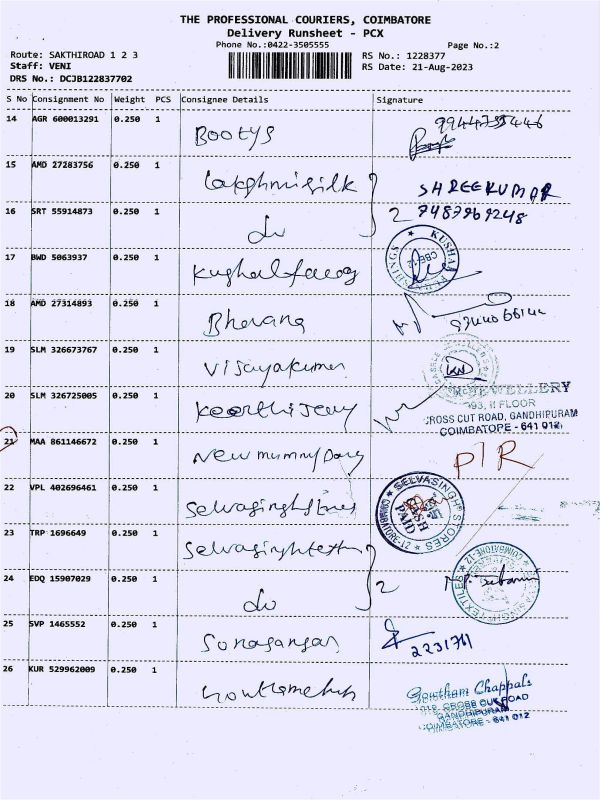 THE PROFESSIONAL COURIERS, COIMBATORE
Delivery Runsheet - PCX
Phone No.:0422-3505555
Page No.:2
Route: SAKTHIROAD 1 2 3
Staff: VENI
DRS No.: DCJB122837702
RS No.: 1228377
RS Date: 21-Aug-2023
S No Consignment No Weight PCS Consignee Details Signature
14 AGR 600013291 0.250 1 Bootys
15 AMD 27283756 0.250 1 Lakshmisilk SHREEKUMAR
16 SRT 55914873 0.250 1 do 2 7487969248
17 BWD 5063937 0.250 1 KUSHAL CBE-12
18 AMD 27314893 0.250 1 Bhavana
19 SLM 326673767 0.250 1 Vijayakumar
20 SLM 326725005 0.250 1 JEWELLERY
II FLOOR
CROSS CUT ROAD, GANDHIPURAM
COIMBATORE - 641 012
21 MAA 861146672 0.250 1 New mummy P/R
22 VPL 402696461 0.250 1 SELVASINGH STORES COIMBATORE-12 CASH PAID
23 TRP 1696649 0.250 1
24 EDQ 15907029 0.250 1 do 2 SELVA SINGH TEXTILES COIMBATORE-12
25 SVP 1465552 0.250 1 2231761
26 KUR 529962009 0.250 1 Gowtham Chappals
CROSS CUT ROAD
GANDHIPURAM
COIMBATORE - 641 012